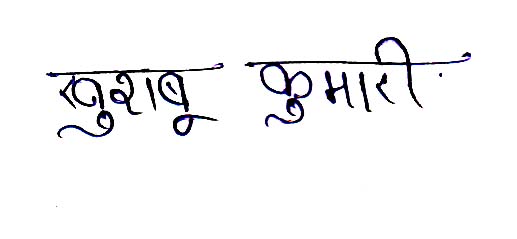 खुशबू कुमारी